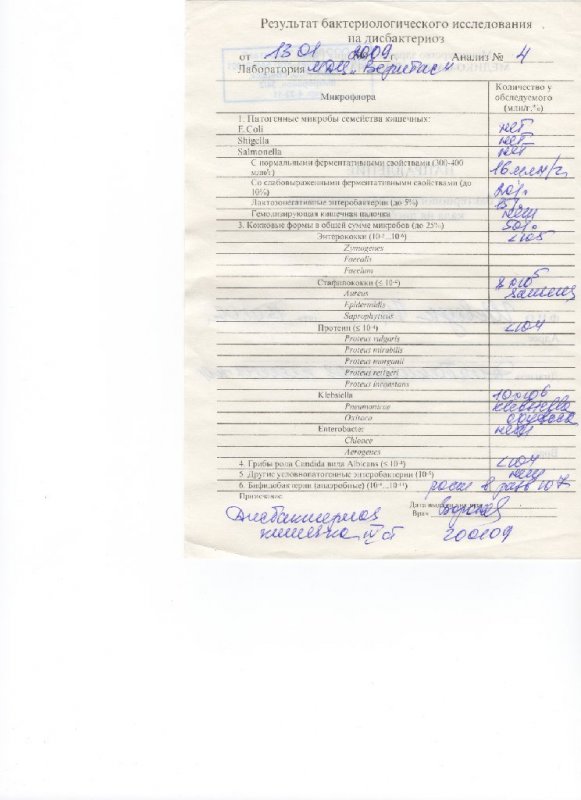 Результат бактериологического исследования
на дисбактериоз
от 13 01 2009 г. Анализ № 4
Лаборатория МДЦ „Веритас"
Микрофлора
Количество у
обследуемого
(млн/г.*%)
1. Патогенные микробы семейства кишечных:
E.Coli нет
Shigella нет
Salmonella нет
С нормальными ферментативными свойствами (300-400
млн/г) 16 млн/г
Со слабовыраженными ферментативными свойствами (до
10%) 20%
Лактозонегативные энтеробактерии (до 5%) 15%
Гемолизирующая кишечная палочка
3. Кокковые формы в общей сумме микробов (до 25%) 50%
Энтерококки <105
Zymogenes
Faecalis
Faecium
Стафилококки
Aureus
Epidermidis
Saprophyticus
Протеии <104
Proteus vulgaris
Proteus mirabilis
Proteus morganii
Proteus retigeri
Proteus inconstans
Klebsiella
Pneumonicae клебсиелла
Oxitoca окситока
Enterobacter
Cloace
Aerogenes
4. Грибы рода Candida вида Albicans <104
5. Другие условнопатогенные энтеробактерии
6. Бифидобактерии (анаэробные) рост в разв 107
Примечание
Дата
Дисбактериоз Врач
кишечника IV ст 200109